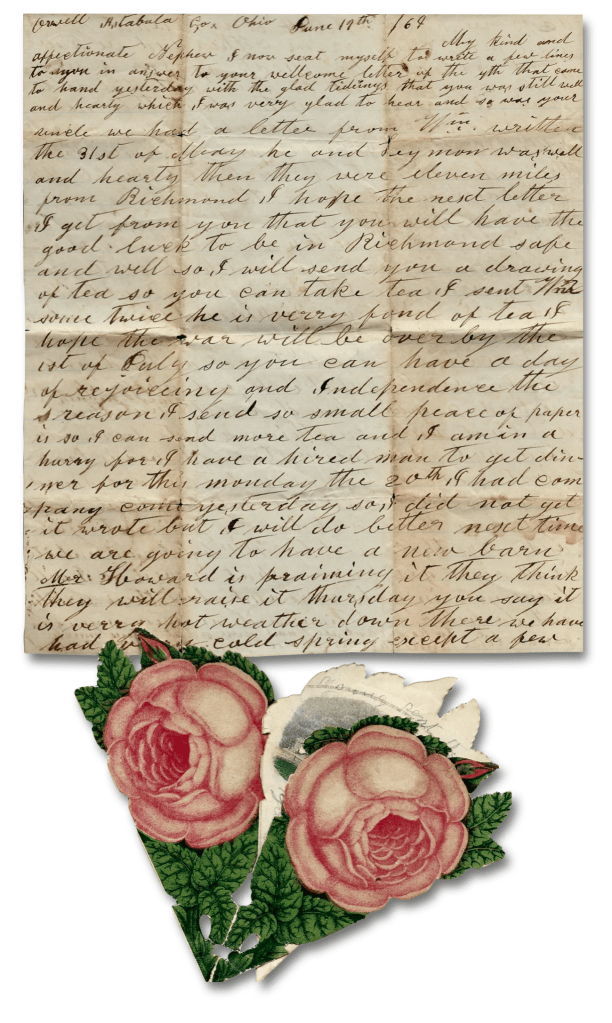 Orwell Ashtabula Co. Ohio June 19th /64
My kind and
affectionate Nephew I now seat myself to write a few lines
to you in answer to your wellcome letter of the 9th that came
to hand yesterday with the glad tidings that you was still well
and hearty which I was verry glad to hear and so was your
uncle we had a letter from Wm. written
the 31st of May he and Seymon was well
and hearty then they were eleven miles
from Richmond I hope the next letter
I get from you that you will have the
good luck to be in Richmond safe
and well so I will send you a drawing
of tea so you can take tea I sent Wm
some twice he is verry fond of tea I
hope the war will be over by the
1st of July so you can have a day
of rejoiccing and Independence the
reason I send so small peace of paper
is so I can send more tea and I am in a
hurry for I have a hired man to get din-
ner for this monday the 20th I had com
pany come yesterday so I did not get
it wrote but I will do better next time
we are going to have a new barn
Mr. Howard is praiming it they think
they will raise it thursday you say it
is verry hot weather down there we have
had cold spring except a few